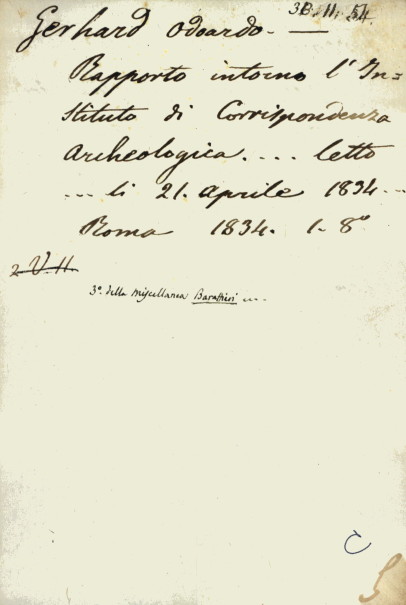 3B. II. 54.
Gerhard Odoardo. —
Rapporto intorno l'In=
stituto di Corrispondenza
Archeologica.... letto
... li 21. Aprile 1834...
Roma 1834. 1. 8º
2. V. 11.
3º della Miscellanea ...
C